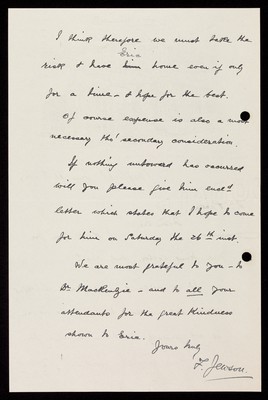 I think therefore we must take the
Eric
risk & have him home even if only
for a time - & hope for the best.
Of course expense is also a most
necessary tho' secondary consideration.
If nothing untoward has occurred
will you please give him encld
letter which states that I hope to come
for him on Saturday the 26th inst.
We are most grateful to you - to
Dr. MacKenzie - and to all your
attendants for the great kindness
shown to Eric.
Yours truly
F. Jewson.